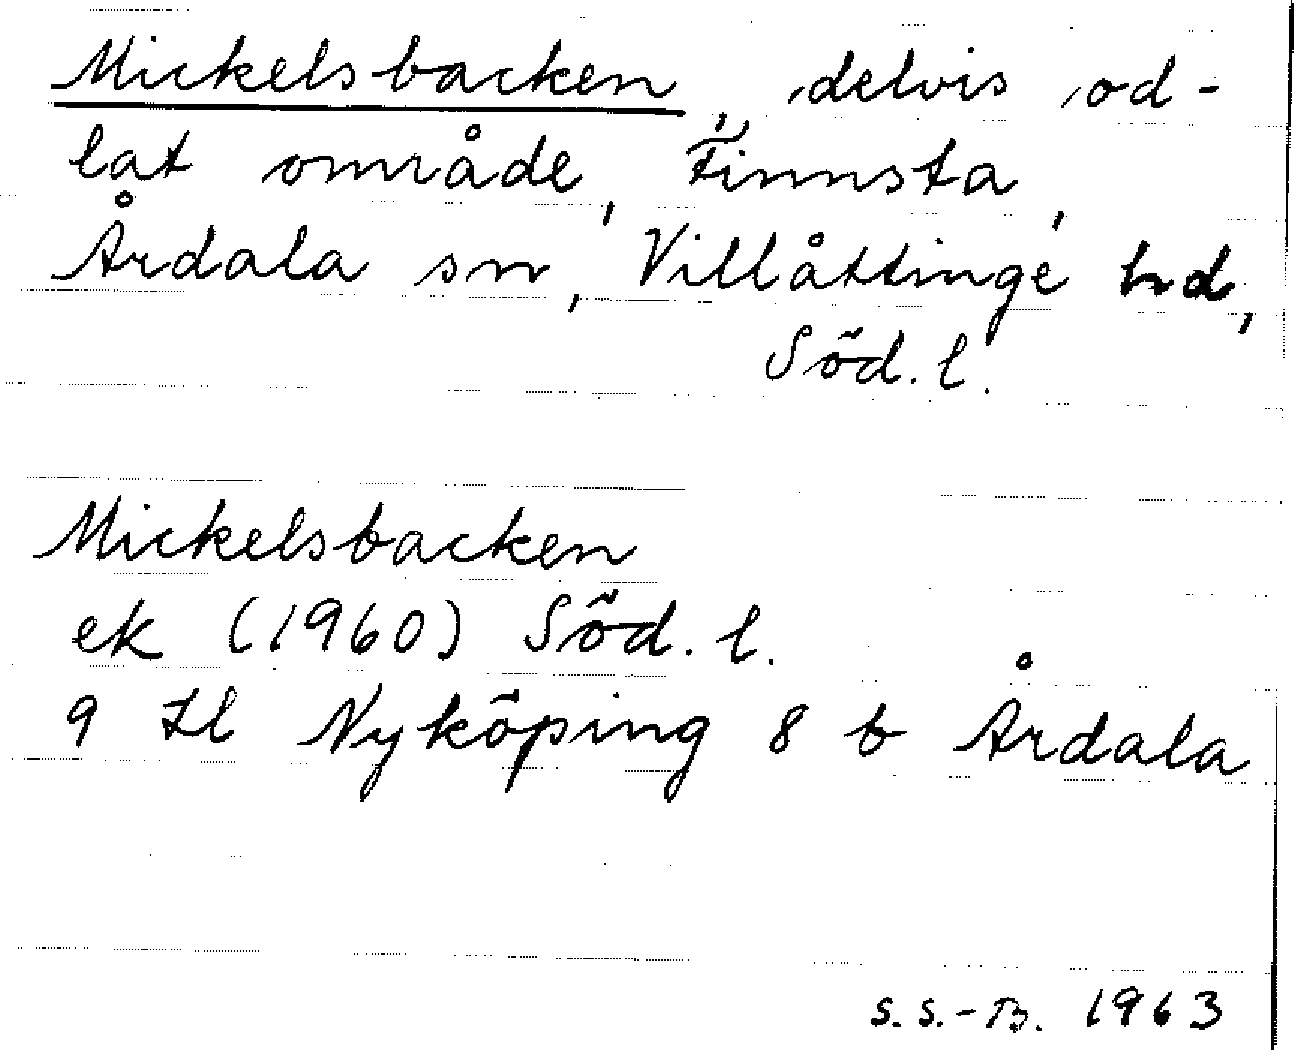 Mickelsbacken, delvis od-
lat område, Finnsta,
Årdala sn, Villåttinge hd,
Söd. l.
Mickelsbacken
ek (1960) Söd. l.
9 Hl Nyköping 8 b Årdala
S. S.-B. 1963